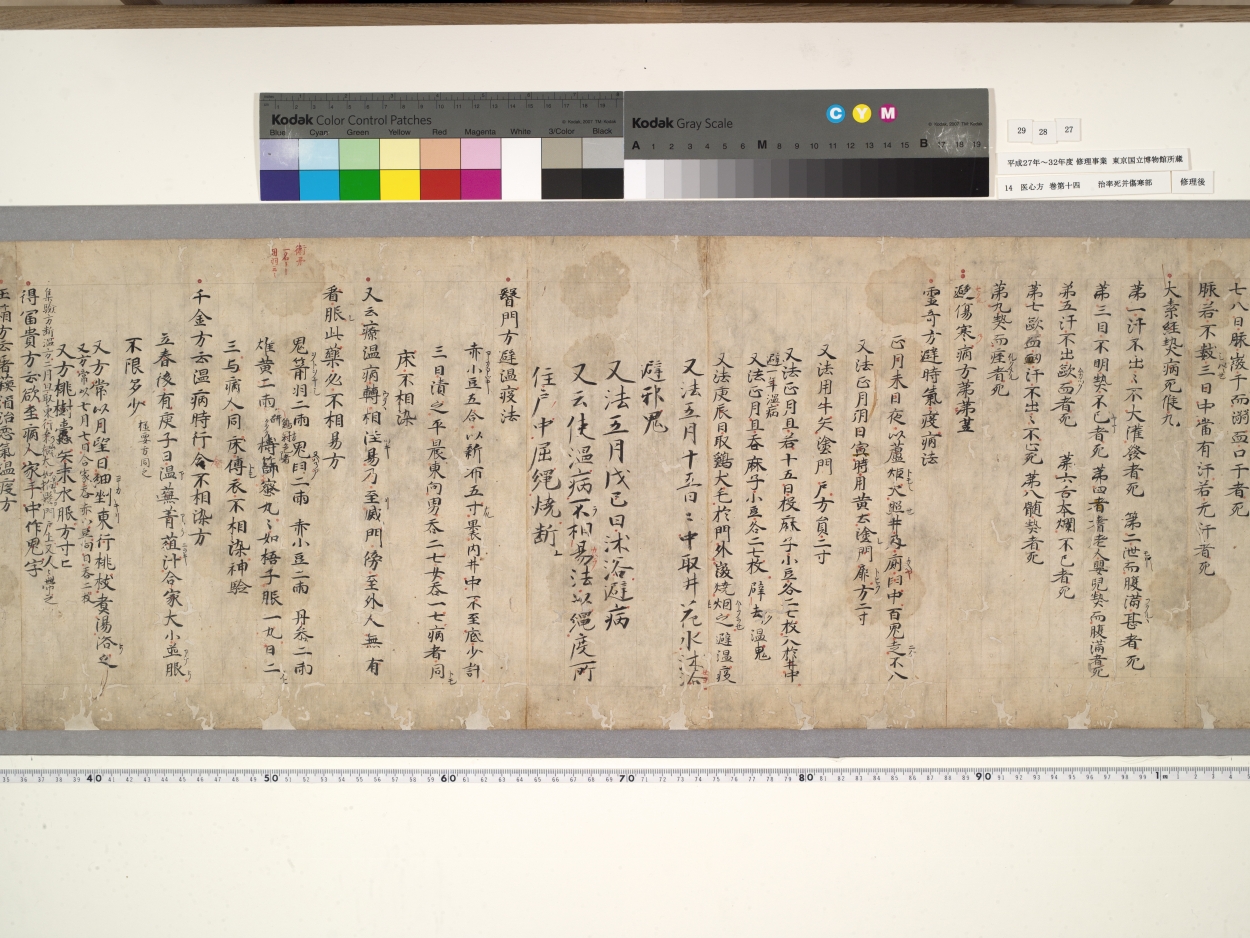 Kodak Color Control Patches
Blue Cyan Green Yellow Red Magenta White 3/Color Black
Kodak Gray Scale
C Y M
A 1 2 3 4 5 6 M 8 9 10 11 12 13 14 15 B 17 18 19
29 28 27
平成27年～32年度 修理事業 東京国立博物館所蔵
14 医心方 巻第十四 治卒死并傷寒部 修理後
七八日脉微千而溺面口干者死
脉若不數三日中當有汗若无汗者死
大素経熱病死候九
第一汗不出々不大灌發者死 第二泄而腹滿甚者死
第三目不明熱不已者死 第四耆老人嬰兒熱而腹滿者死
第五汗不出歐血者死 第六舌本爛不已者死
第七歐血衄汗不出々不至死 第八髄熱者死
第九熱而痙者死
避傷寒病方第
霊奇方避時氣疫病法
正月未日夜以蘆炬火照井及厠中百鬼走不入
又法正月朔日寅時用黄土塗門扉方二寸
又法用牛矢塗門戸方員二寸
又法正月旦若十五日投麻子小豆各二七枚入於井中
避一年温病
又法正月旦呑麻子小豆各二七枚辟去温鬼
又法庚辰日取鷄犬毛於門外微燒烟之避温疫
又法五月十三日
避邪鬼
又法五月戊己日沐浴避病
又云使温病不相易法以繩度所
住戸中屈繩燒断之
醫門方避温疫法
赤小豆五合以新布五寸裹内井中不至底少許
三日漬之平晨東向男呑二七女呑一七病者同
床不相染
又云療温病轉相注易乃至滅門傍至外人無有
看服此藥必不相易方
鬼箭羽二兩 鬼臼二兩 赤小豆二兩 丹参二兩
雄黄二兩 擣篩蜜丸々如梧子服一丸日二
三与病人同床傳衣不相染神驗
千金方云温病時行令不相染方
立春後有庚子日温蕪菁葅汁合家大小並服
不限多少
又方常以月望日細剉東行桃枝煮湯浴之
又方桃樹蠹矢末水服方寸匕
得冨貴方云欲至病人家手中作鬼字
40 50 60 70 80 90 1m